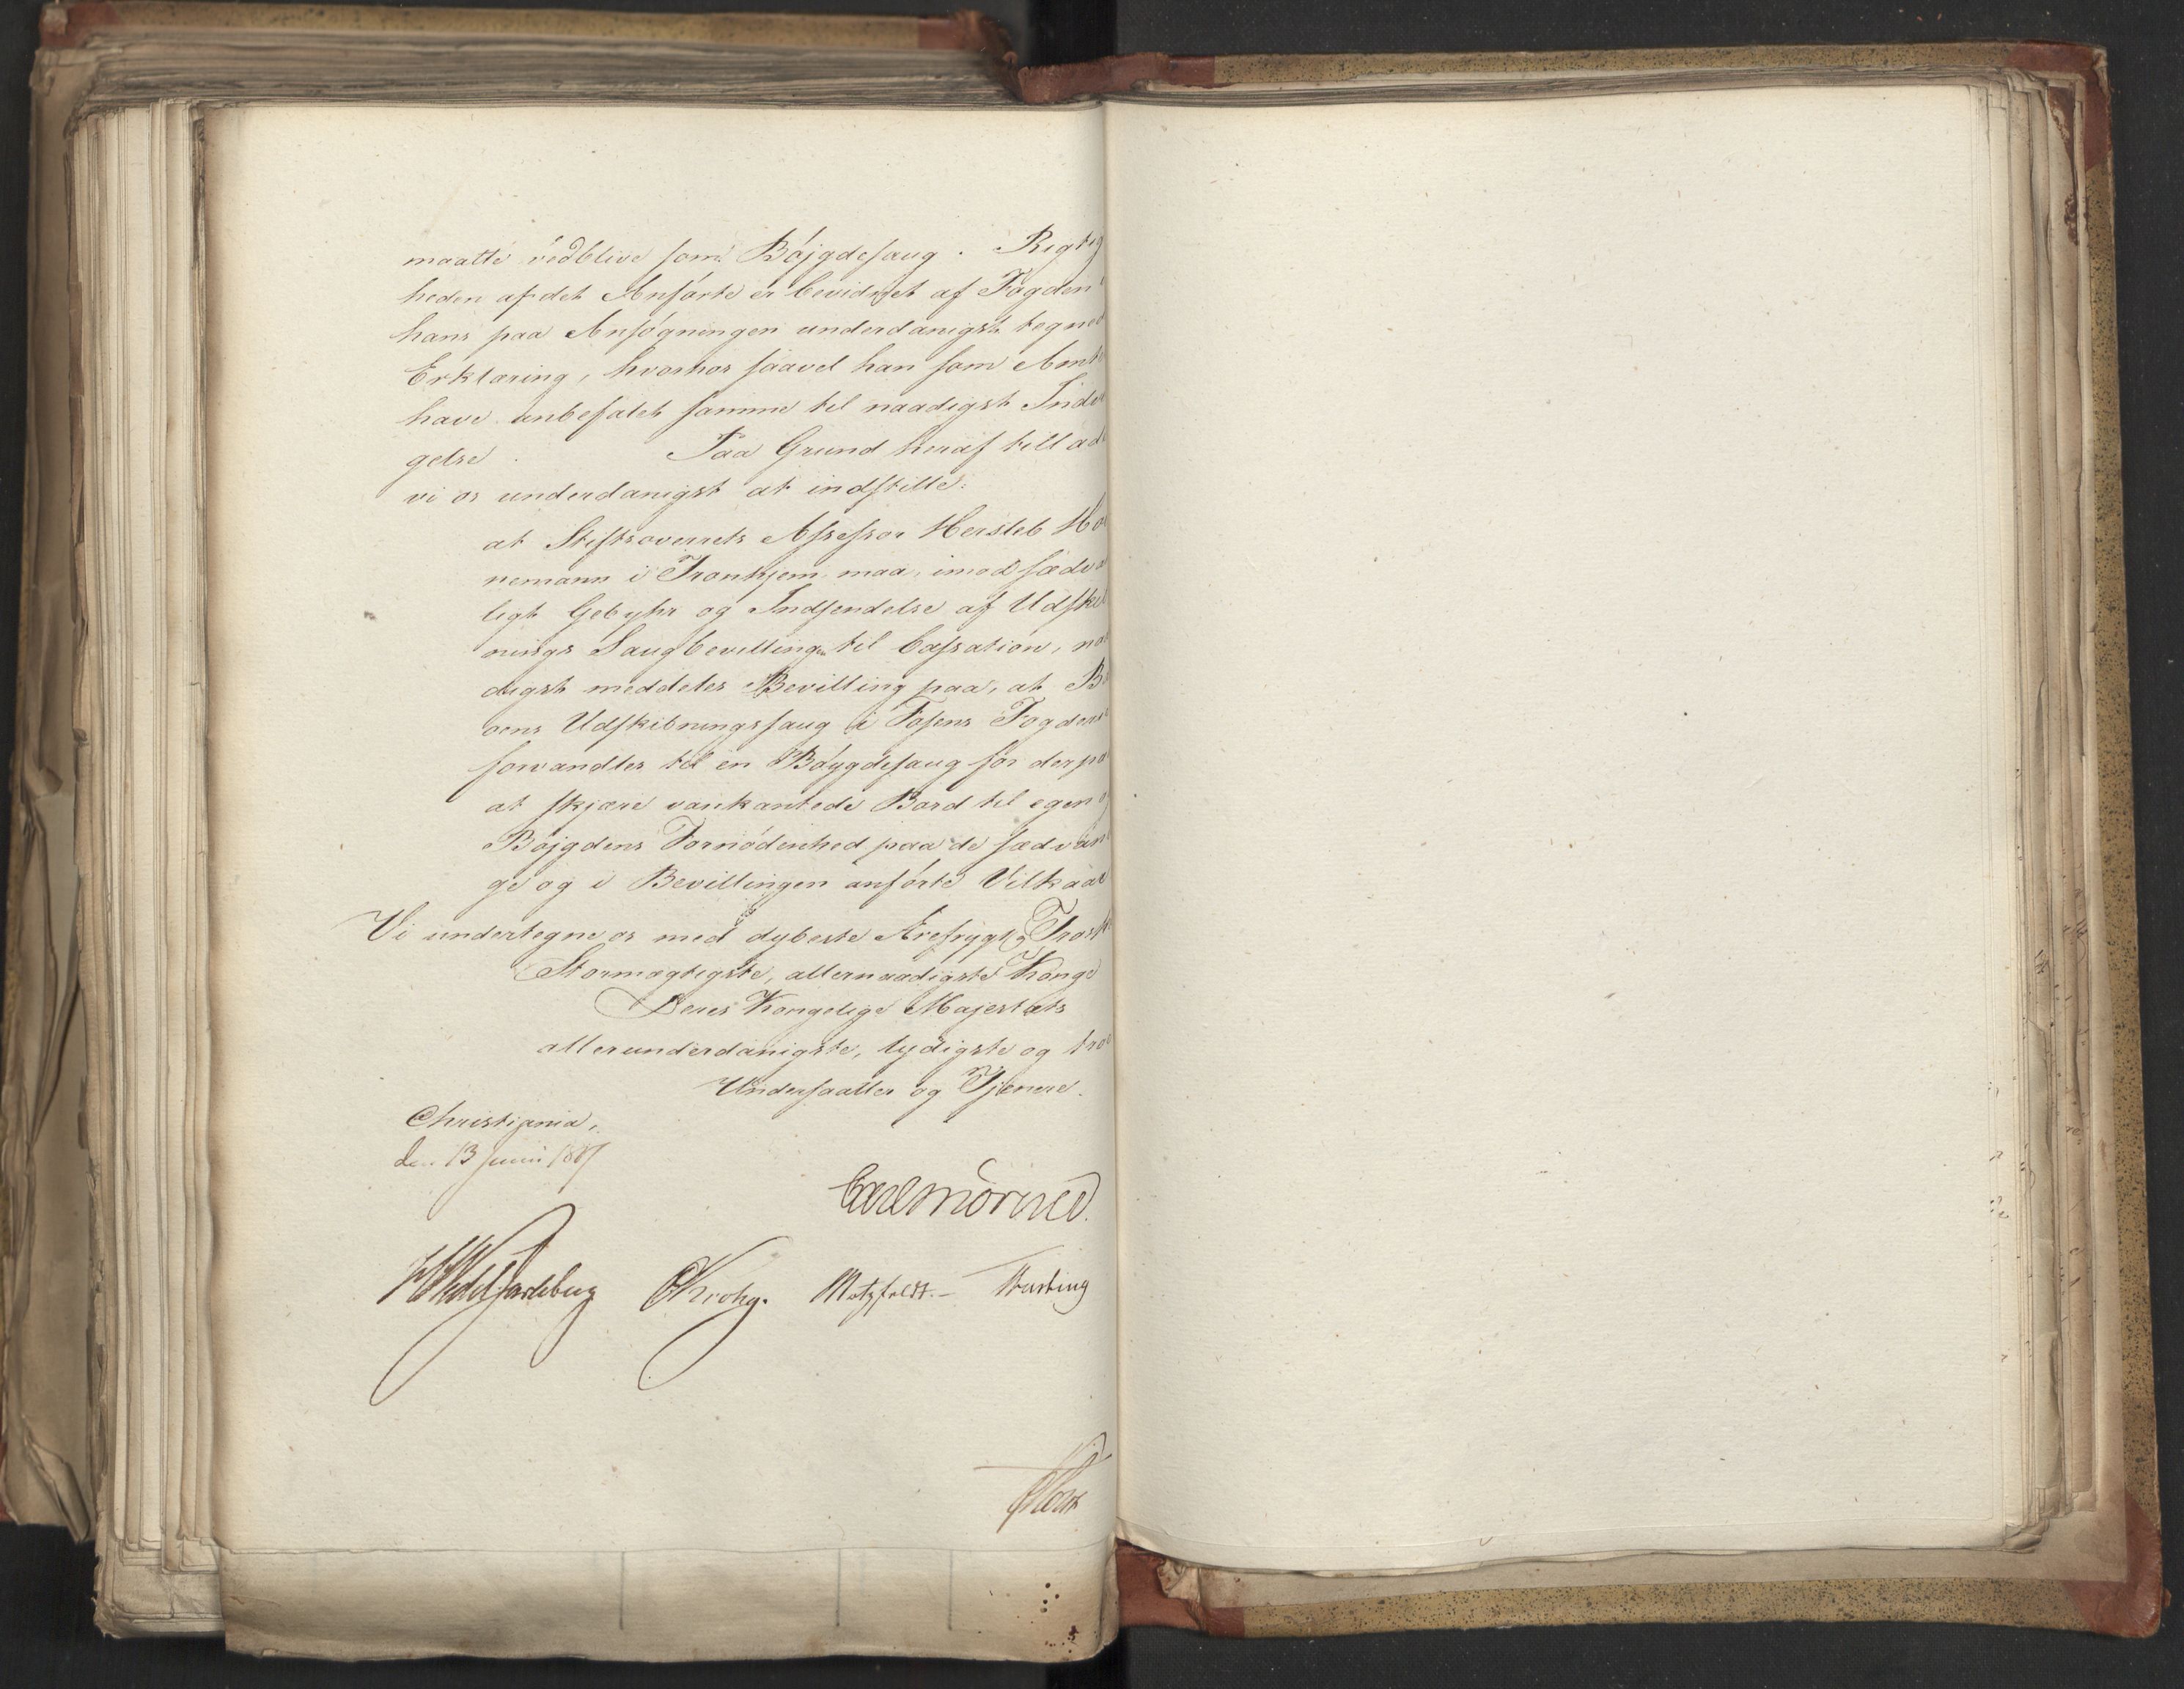 maatte vedblive som Böjgdesaug. Rigtig
heden af det Anförte er bevidnet af Fogden i
hans paa Ansögningen underdanigst tegned
Erklæring, hvorhos saavel han som Amt
have anbefalet samme til naadigst Ind
gelse. Paa Grund heraf tillad
vi os underdanigst at indstille:
at Stiftsoverrets Assessor Hersleb Ho
nemann i Tronhjem maa, imod sædva
ligt Gebyhr og Indsendelse af Udskib
nings Saugbevillingen til Cassation, naa
digst meddeles Bevilling paa, at B
oens Udskibningssaug i Fosens Fogderie
forvandles til en Böygdesaug for derpaa
at skjære vankantede Bord til egen og
Böjgdens Fornödenhed paa de sædvan
ge og i Bevillingen anförte Vilkaar
Vi undertegne os med dybeste Ærefrygt og Trosk
Stormægtigste, allernaadigste Konge
Deres Kongelige Majestæts
allerunderdanigste, lydigste og troe
Undersaatter og Tjenere.
Christiania,
den 13 Junii 1817
Carl Mörner.
HWedel Jarlsberg CKrohg. Motzfeldt.